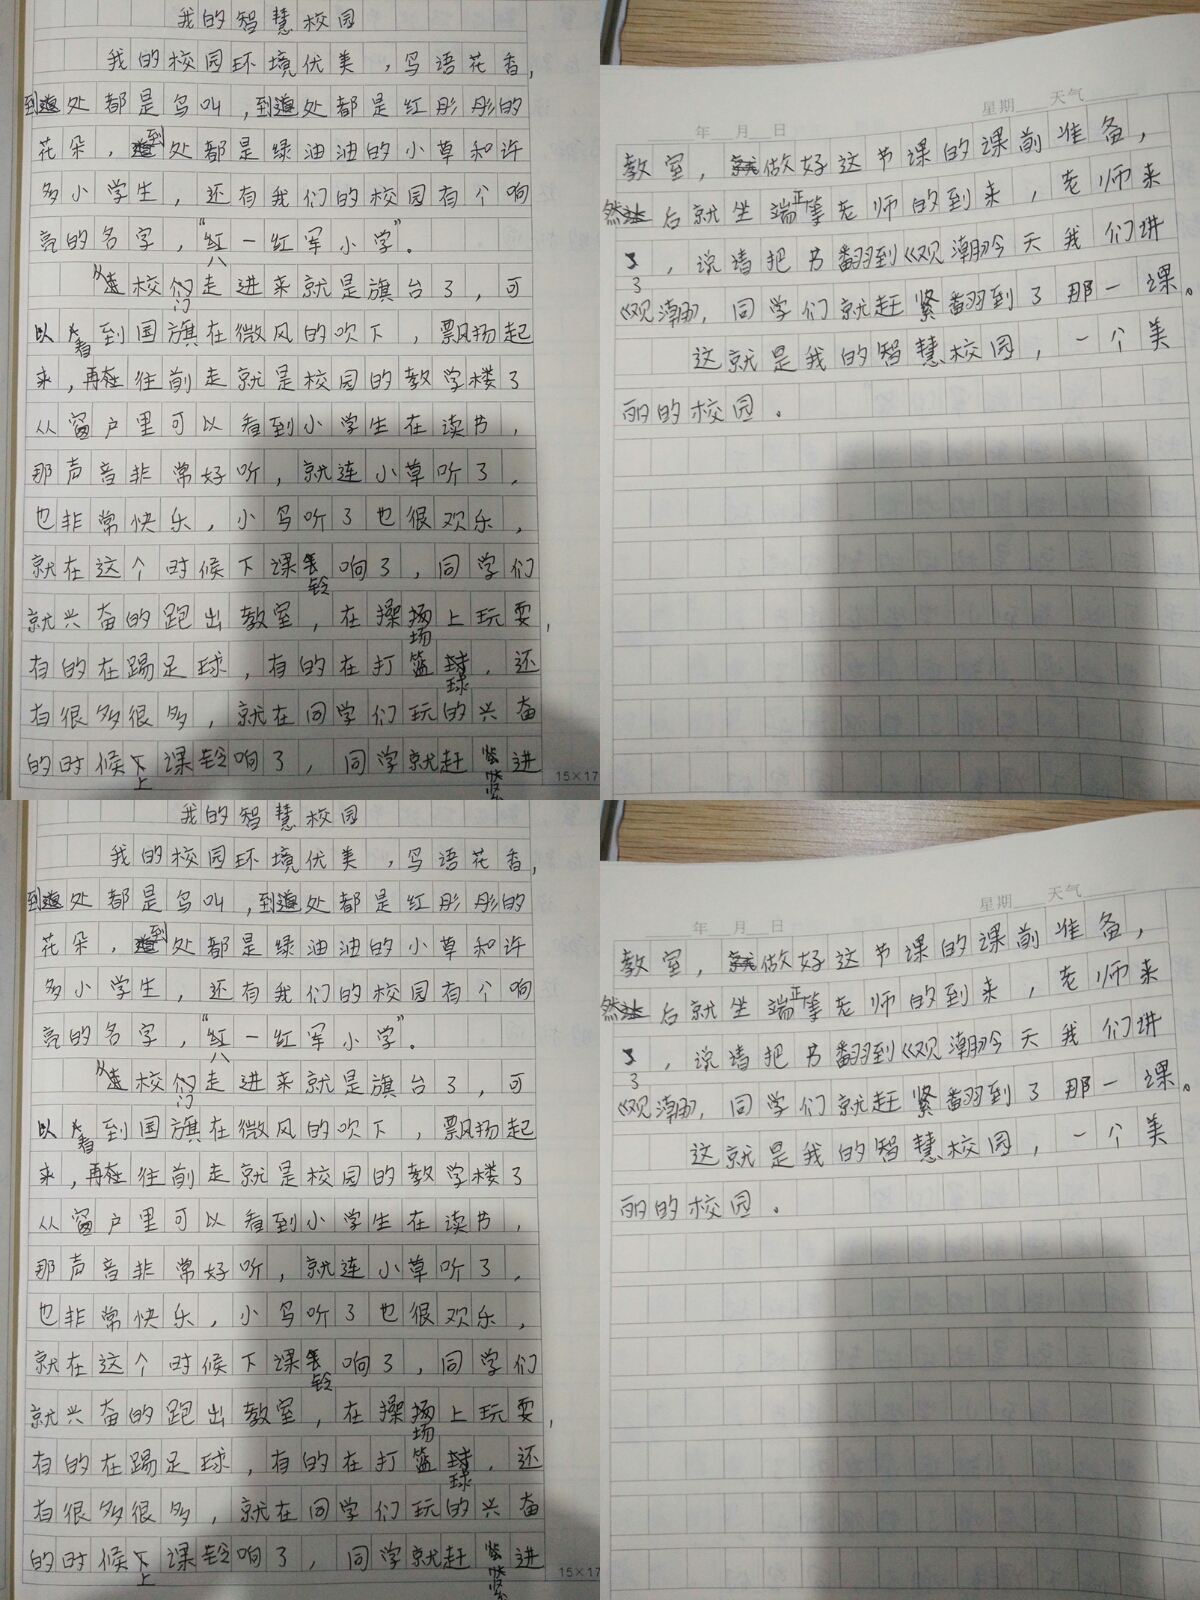 我的智慧校园
我的校园环境优美，鸟语花香，
到处都是鸟叫，到处都是红彤彤的
花朵，到处都是绿油油的小草和许
多小学生，还有我们的校园有个响
亮的名字，“八一红军小学”。
从校门走进来就是旗台了，可
以看到国旗在微风的吹下，飘扬起
来，再往前走就是校园的教学楼了
从窗户里可以看到小学生在读书，
那声音非常好听，就连小草听了，
也非常快乐，小鸟听了也很欢乐，
就在这个时候下课铃响了，同学们
就兴奋的跑出教室，在操场上玩耍，
有的在踢足球，有的在打篮球，还
有很多很多，就在同学们玩的兴奋
的时候上课铃响了，同学就赶紧进
15×17
星期 天气
年 月 日
教室，做好这节课的课前准备，
然后就坐端正等老师的到来，老师来
了，说请把书翻到《观潮》今天我们讲
《观潮》，同学们就赶紧翻到了那一课。
这就是我的智慧校园，一个美
丽的校园。
我的智慧校园
我的校园环境优美，鸟语花香，
到处都是鸟叫，到处都是红彤彤的
花朵，到处都是绿油油的小草和许
多小学生，还有我们的校园有个响
亮的名字，“八一红军小学”。
从校门走进来就是旗台了，可
以看到国旗在微风的吹下，飘扬起
来，再往前走就是校园的教学楼了
从窗户里可以看到小学生在读书，
那声音非常好听，就连小草听了，
也非常快乐，小鸟听了也很欢乐，
就在这个时候下课铃响了，同学们
就兴奋的跑出教室，在操场上玩耍，
有的在踢足球，有的在打篮球，还
有很多很多，就在同学们玩的兴奋
的时候上课铃响了，同学就赶紧进
15×17
星期 天气
年 月 日
教室，做好这节课的课前准备，
然后就坐端正等老师的到来，老师来
了，说请把书翻到《观潮》今天我们讲
《观潮》，同学们就赶紧翻到了那一课。
这就是我的智慧校园，一个美
丽的校园。